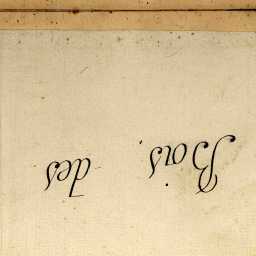 Bois des